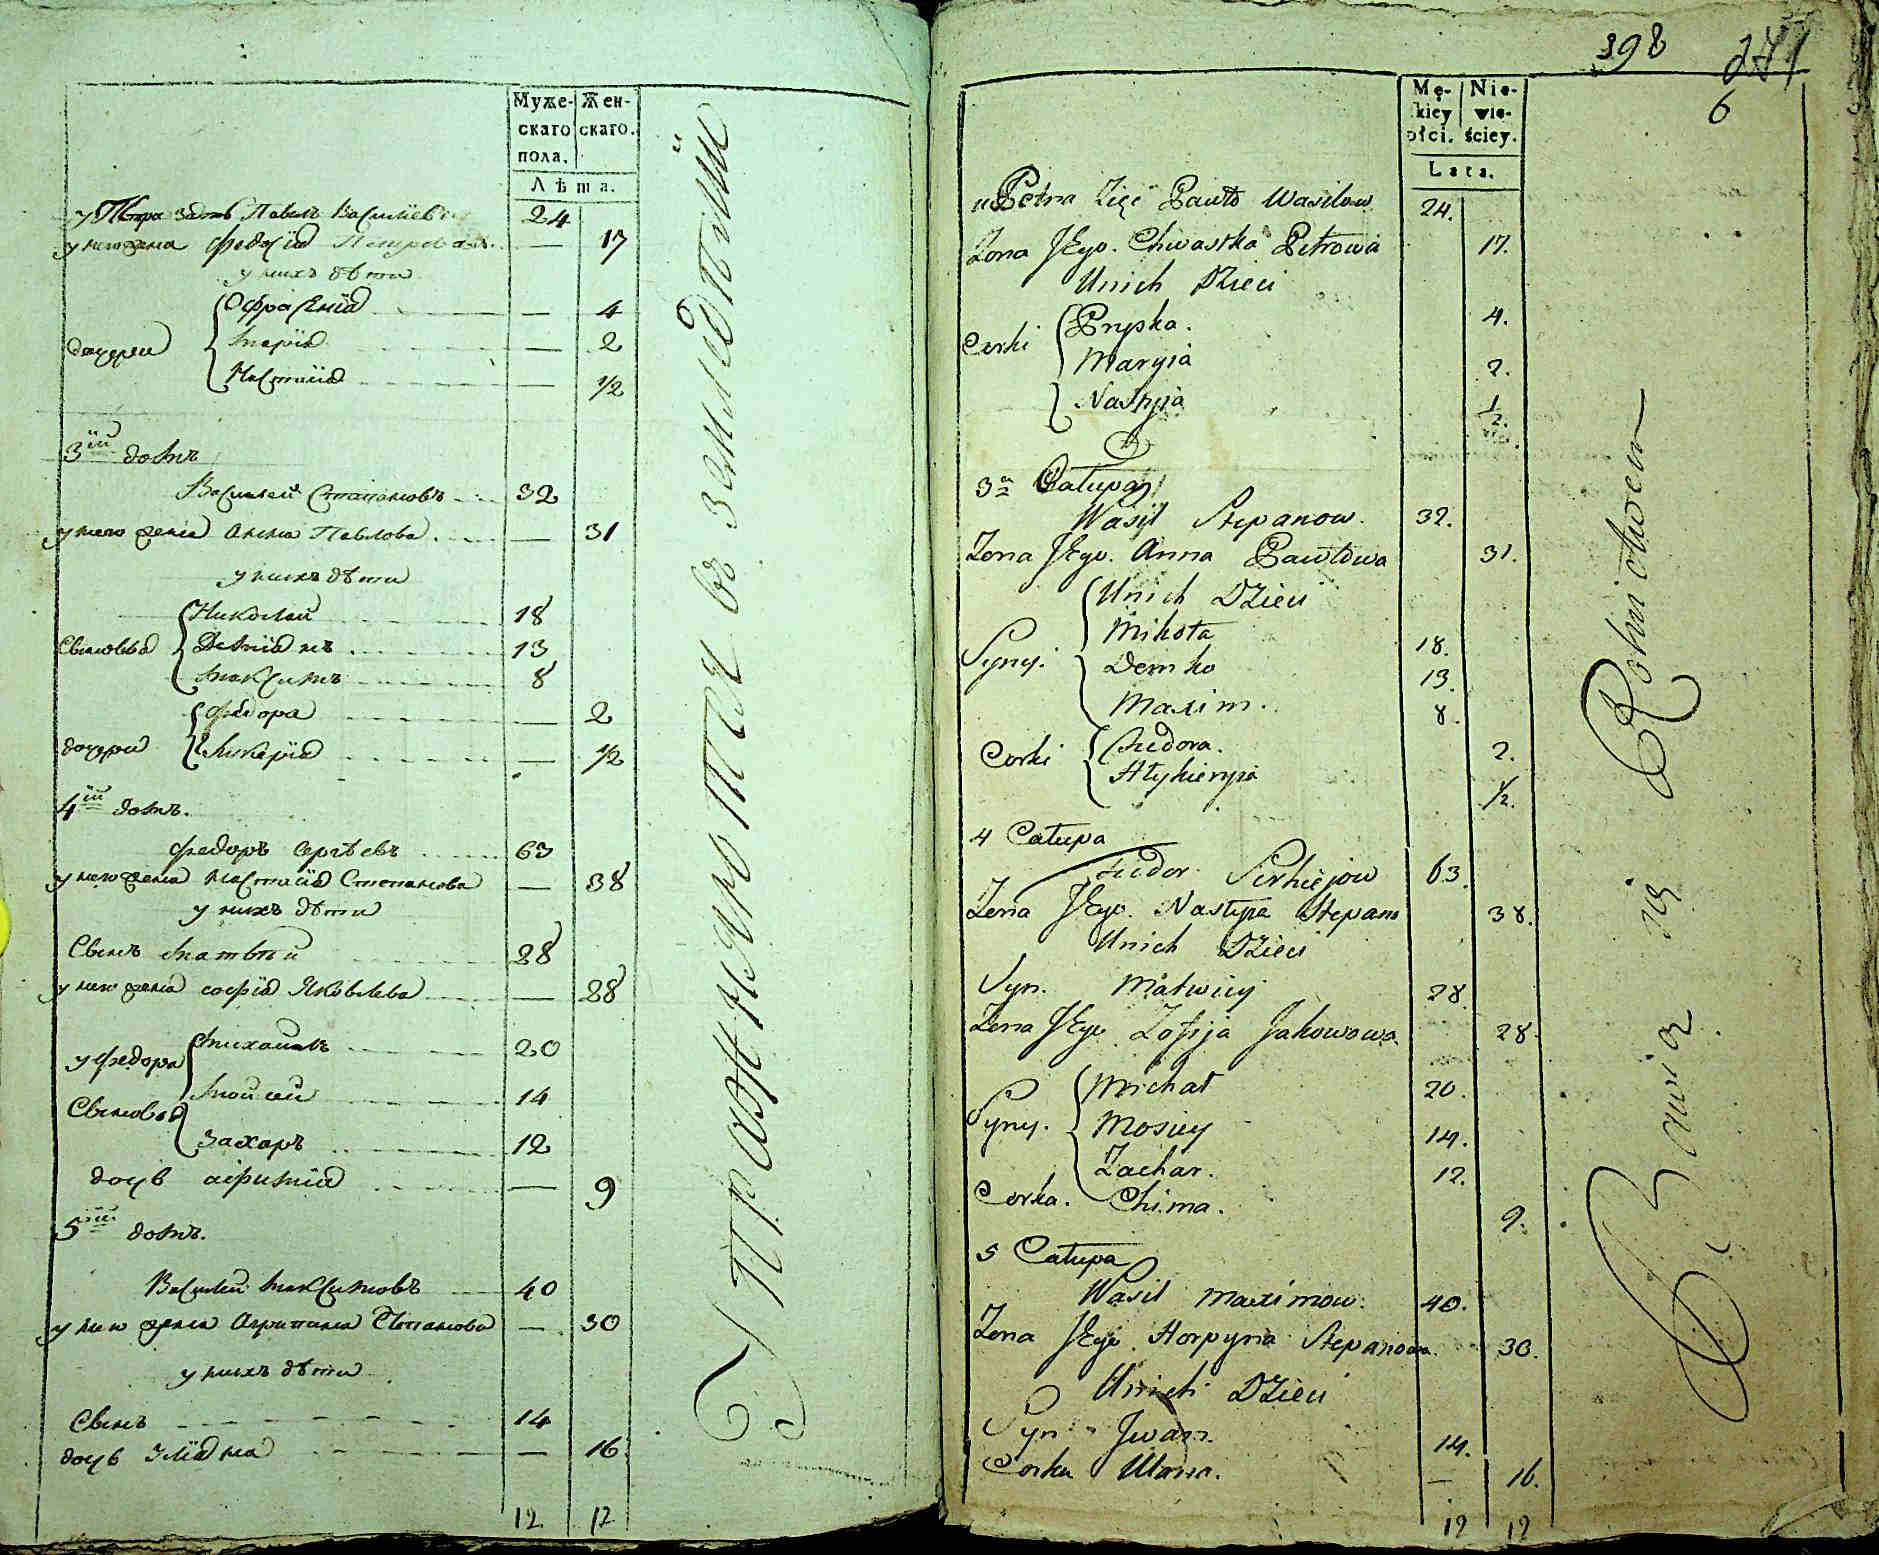 Муже-
скаго
пола.
Жен-
скаго.
Лѣта.
у Петра зять Павелъ Василіевъ 24
у него жена Федосіа Петрова — 17
у нихъ дѣти
дочери
Офрасѣніа — 4
Маріа — 2
Настасіа — 1/2
3ій домъ
Василей Степановъ 32
у него жена Анна Павлова — 31
у нихъ дѣти
Сыновья
Николай 18
Деміанъ 13
Максимъ 8
дочери
Федора — 2
Ликеріа — 1/2
4ій домъ.
Федоръ Сергѣевъ 63
у него жена Настасіа Степанова — 38
у нихъ дѣти
Сынъ Матвѣй 28
у него жена Софіа Яковлева — 28
у Федора
Сыновья
Михаилъ 20
Мойсей 14
Захаръ 12
дочь Афиміа — 9
5ій домъ.
Василей Максимовъ 40
у него жена Агрипина Степанова — 30
у нихъ дѣти
Сынъ 14
дочь Уліана — 16
12 12
Упражняютъ въ земледѣліи
398
6
Mę-
kiey
płci.
Nie-
wie-
ściey.
Lata.
u Petra Zięć Pawło Wasilow 24.
Zona Jego. Chwaska Petrowa 17.
Unich Dzieci
Corki
Pryska. 4.
Maryia 2.
Nastyia 1/2.
3a Całupa
Wasil Stepanow. 32.
Zona Jego. Anna Pawłowa 31.
Unich Dzieci
Syny.
Mikoła 18.
Demko 13.
Maxim. 8.
Corki
Chiedora. 2.
Hłykieryia 1/2.
4 Całupa
Chiedor Serhiejow 63.
Zona Jego. Nastyia Stepano 38.
Unich Dzieci
Syn. Matwiey 28
Zona Jego Zofija Jakowowa 28.
Syny.
Michał 20.
Mosiey 14.
Zachar. 12.
Corka. Chima. 9.
5 Całupa
Wasil Maximow. 40.
Zona Jego Horpyna Stepanowa. 30.
Unich Dzieci
Syn Jwan. 14.
Corka Ulana. — 16.
12 12
Bawią się Rolnictwem